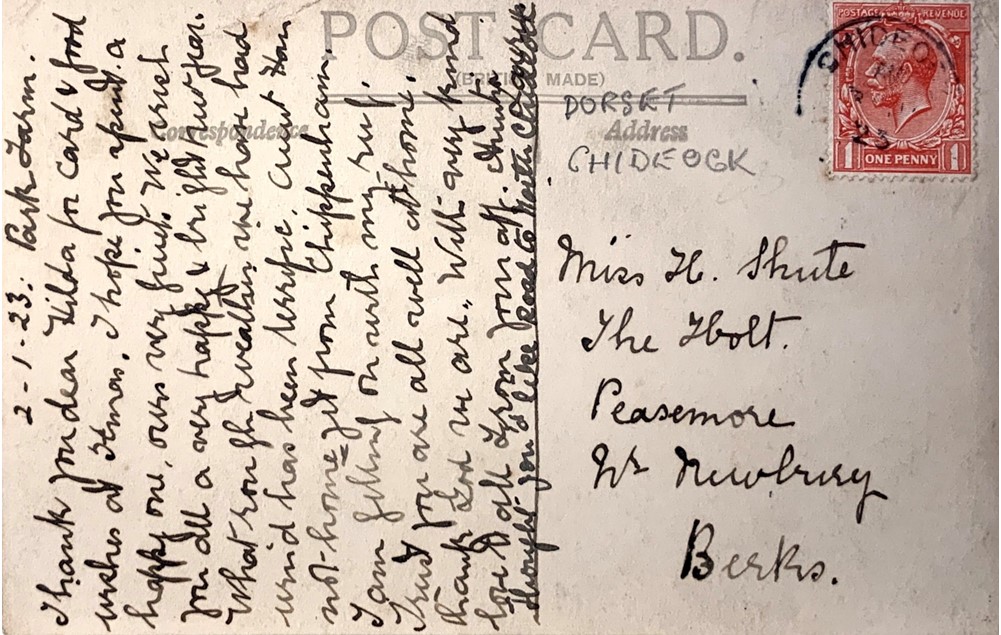 POST CARD.
(BRITISH MADE)
Correspondence
Address
DORSET
CHIDEOCK
POSTAGE REVENUE
CHIDEOCK
23
1 ONE PENNY 1
2-1-23. Park Farm.
Thank you dear Hilda for card & good
wishes at Xmas. I hope you spent a
happy one, ours very quiet. We wish
you all a very happy & bright New Year.
What rough weather we have had
wind has been terrific. Aunt
not home yet from Chippenham.
I am getting on with my rug.
Trust you are all well at home.
thank God we are. With very kind
love to all from yours aff. Auntie
thought you'd like Road to North Chideock
Miss H. Shute
The Holt.
Peasemore
Nr Newbury
Berks.